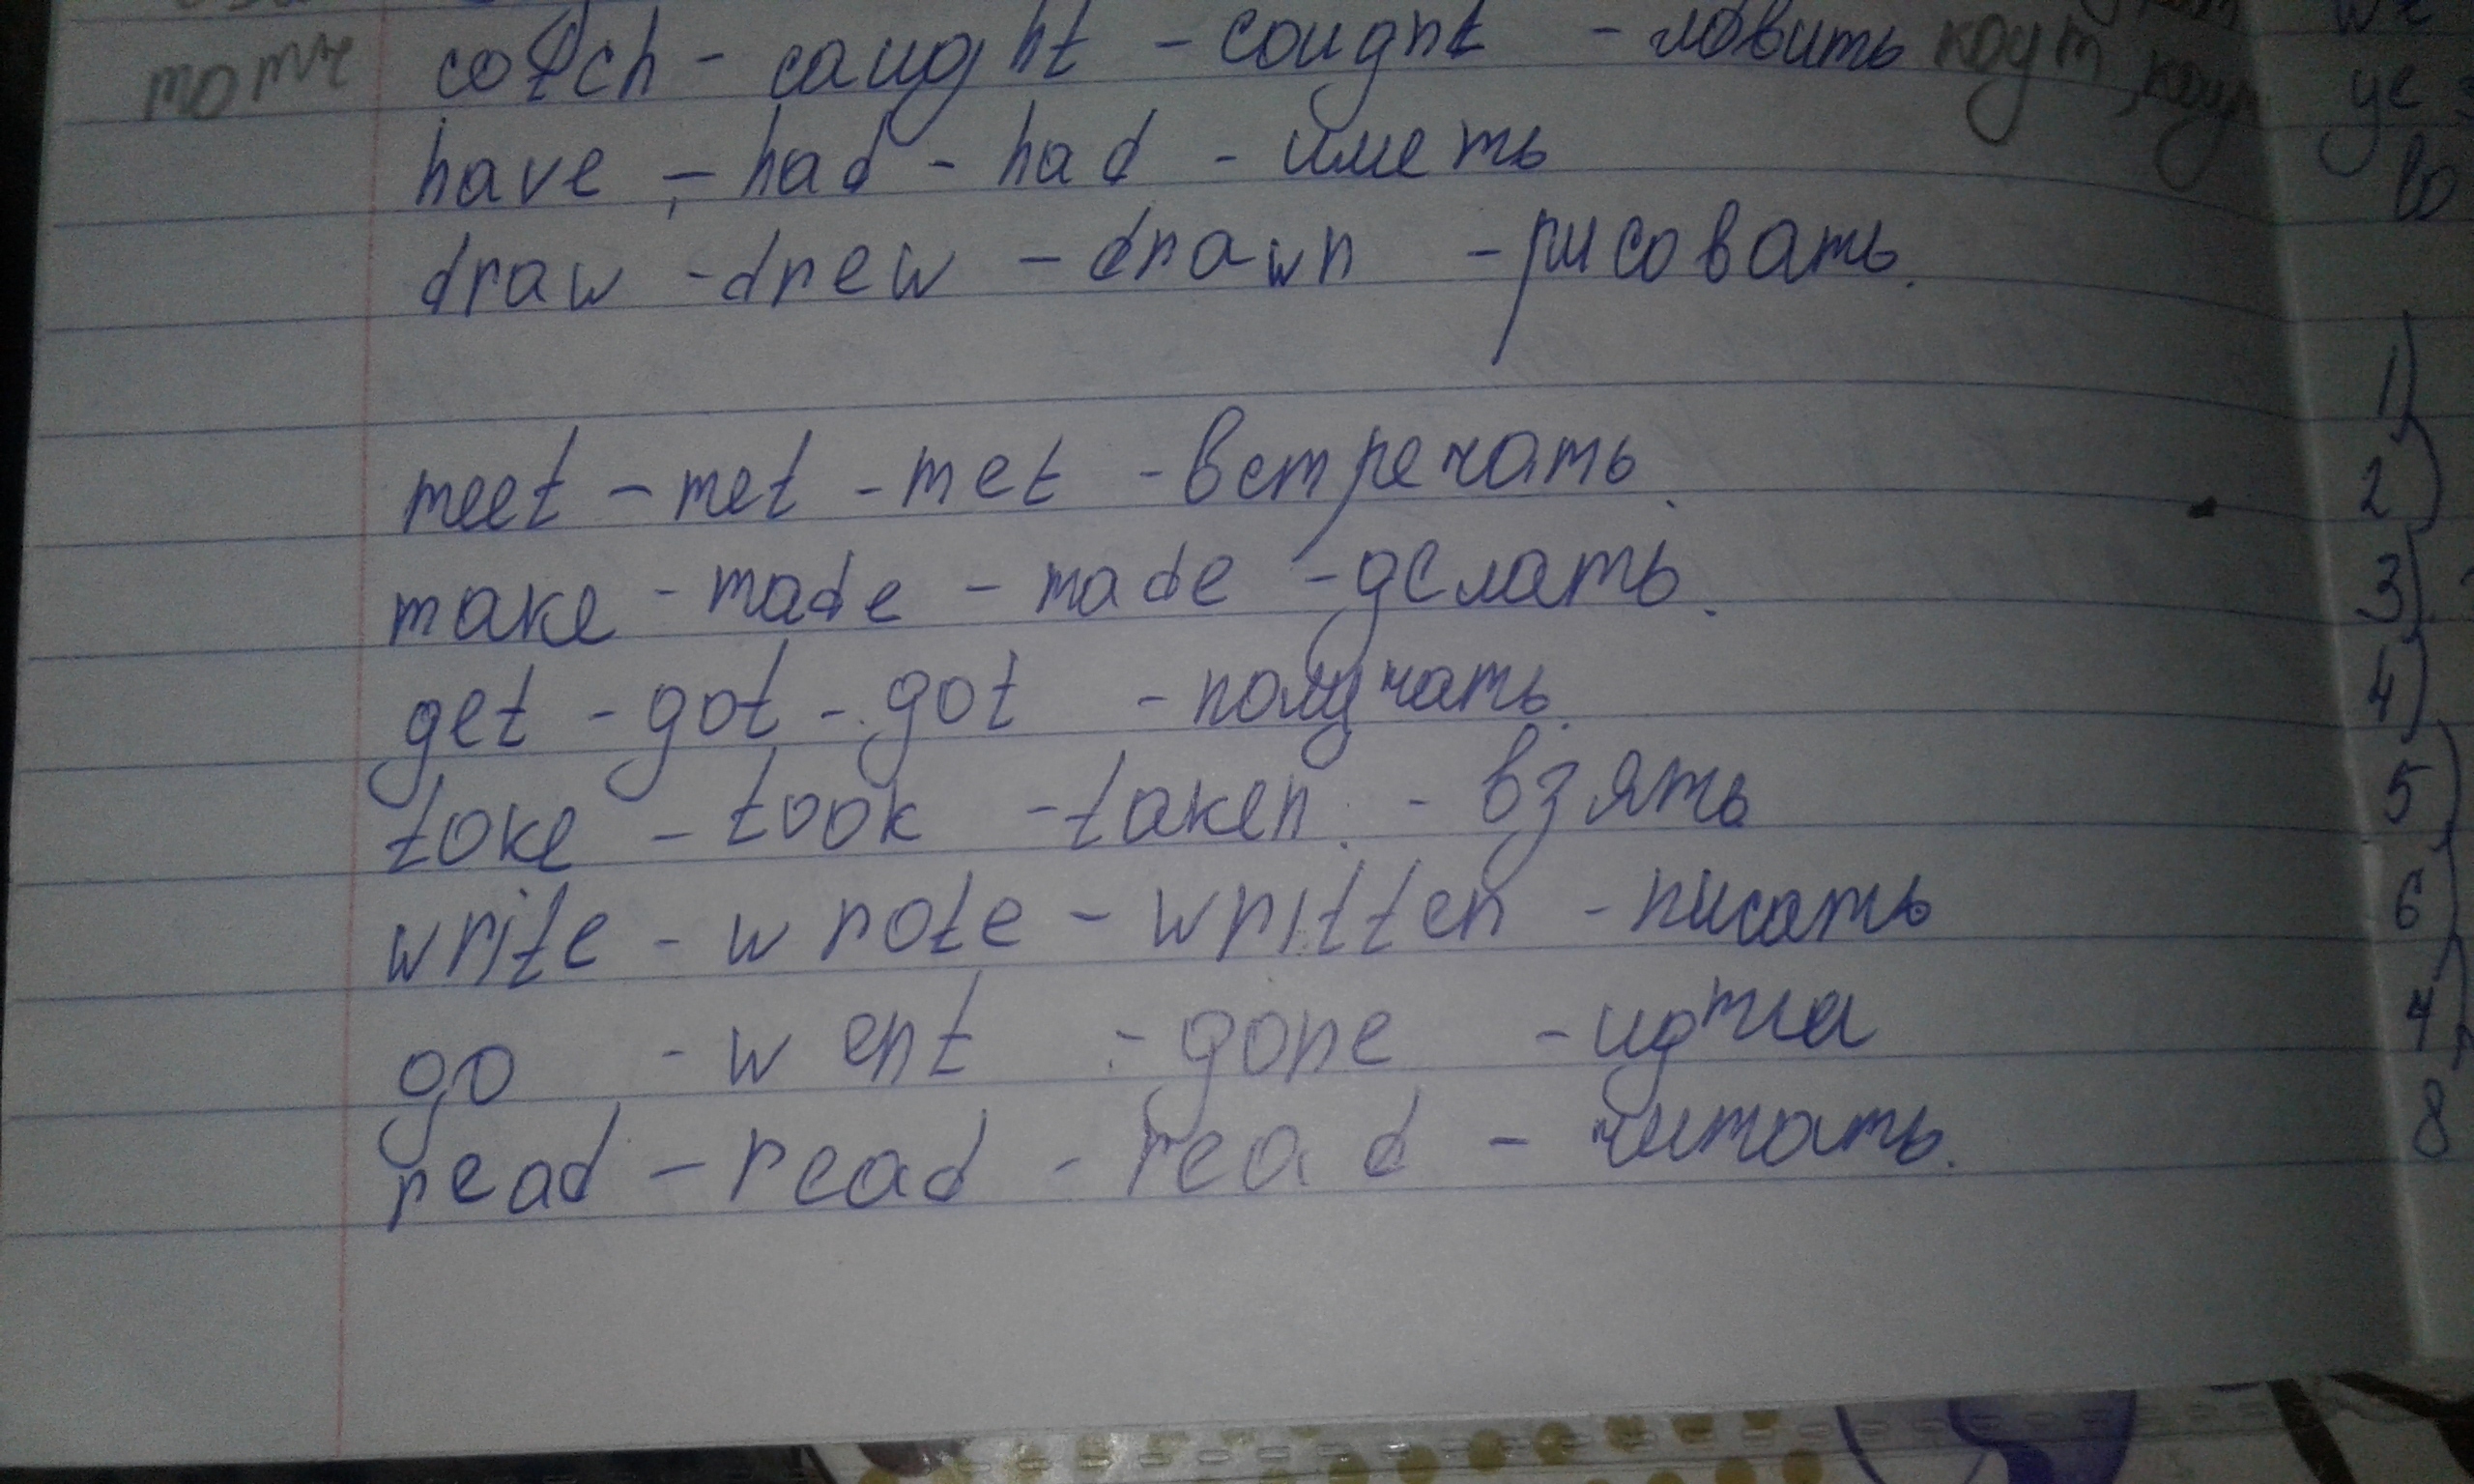 catch - caught - cought - ловить коут, коут
have - had - had - иметь
draw - drew - drawn - рисовать.
meet - met - met - встречать.
make - made - made - делать.
get - got - got - получать.
take - took - taken. - взять
write - wrote - written - писать
go - went - gone - идти
read - read - read - читать.
1)
2)
3)
4)
5)
6)
7)
8